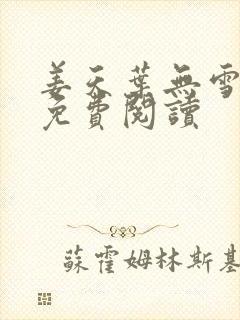 姜天葉無雪
免費閱讀
蘇霍姆林斯基